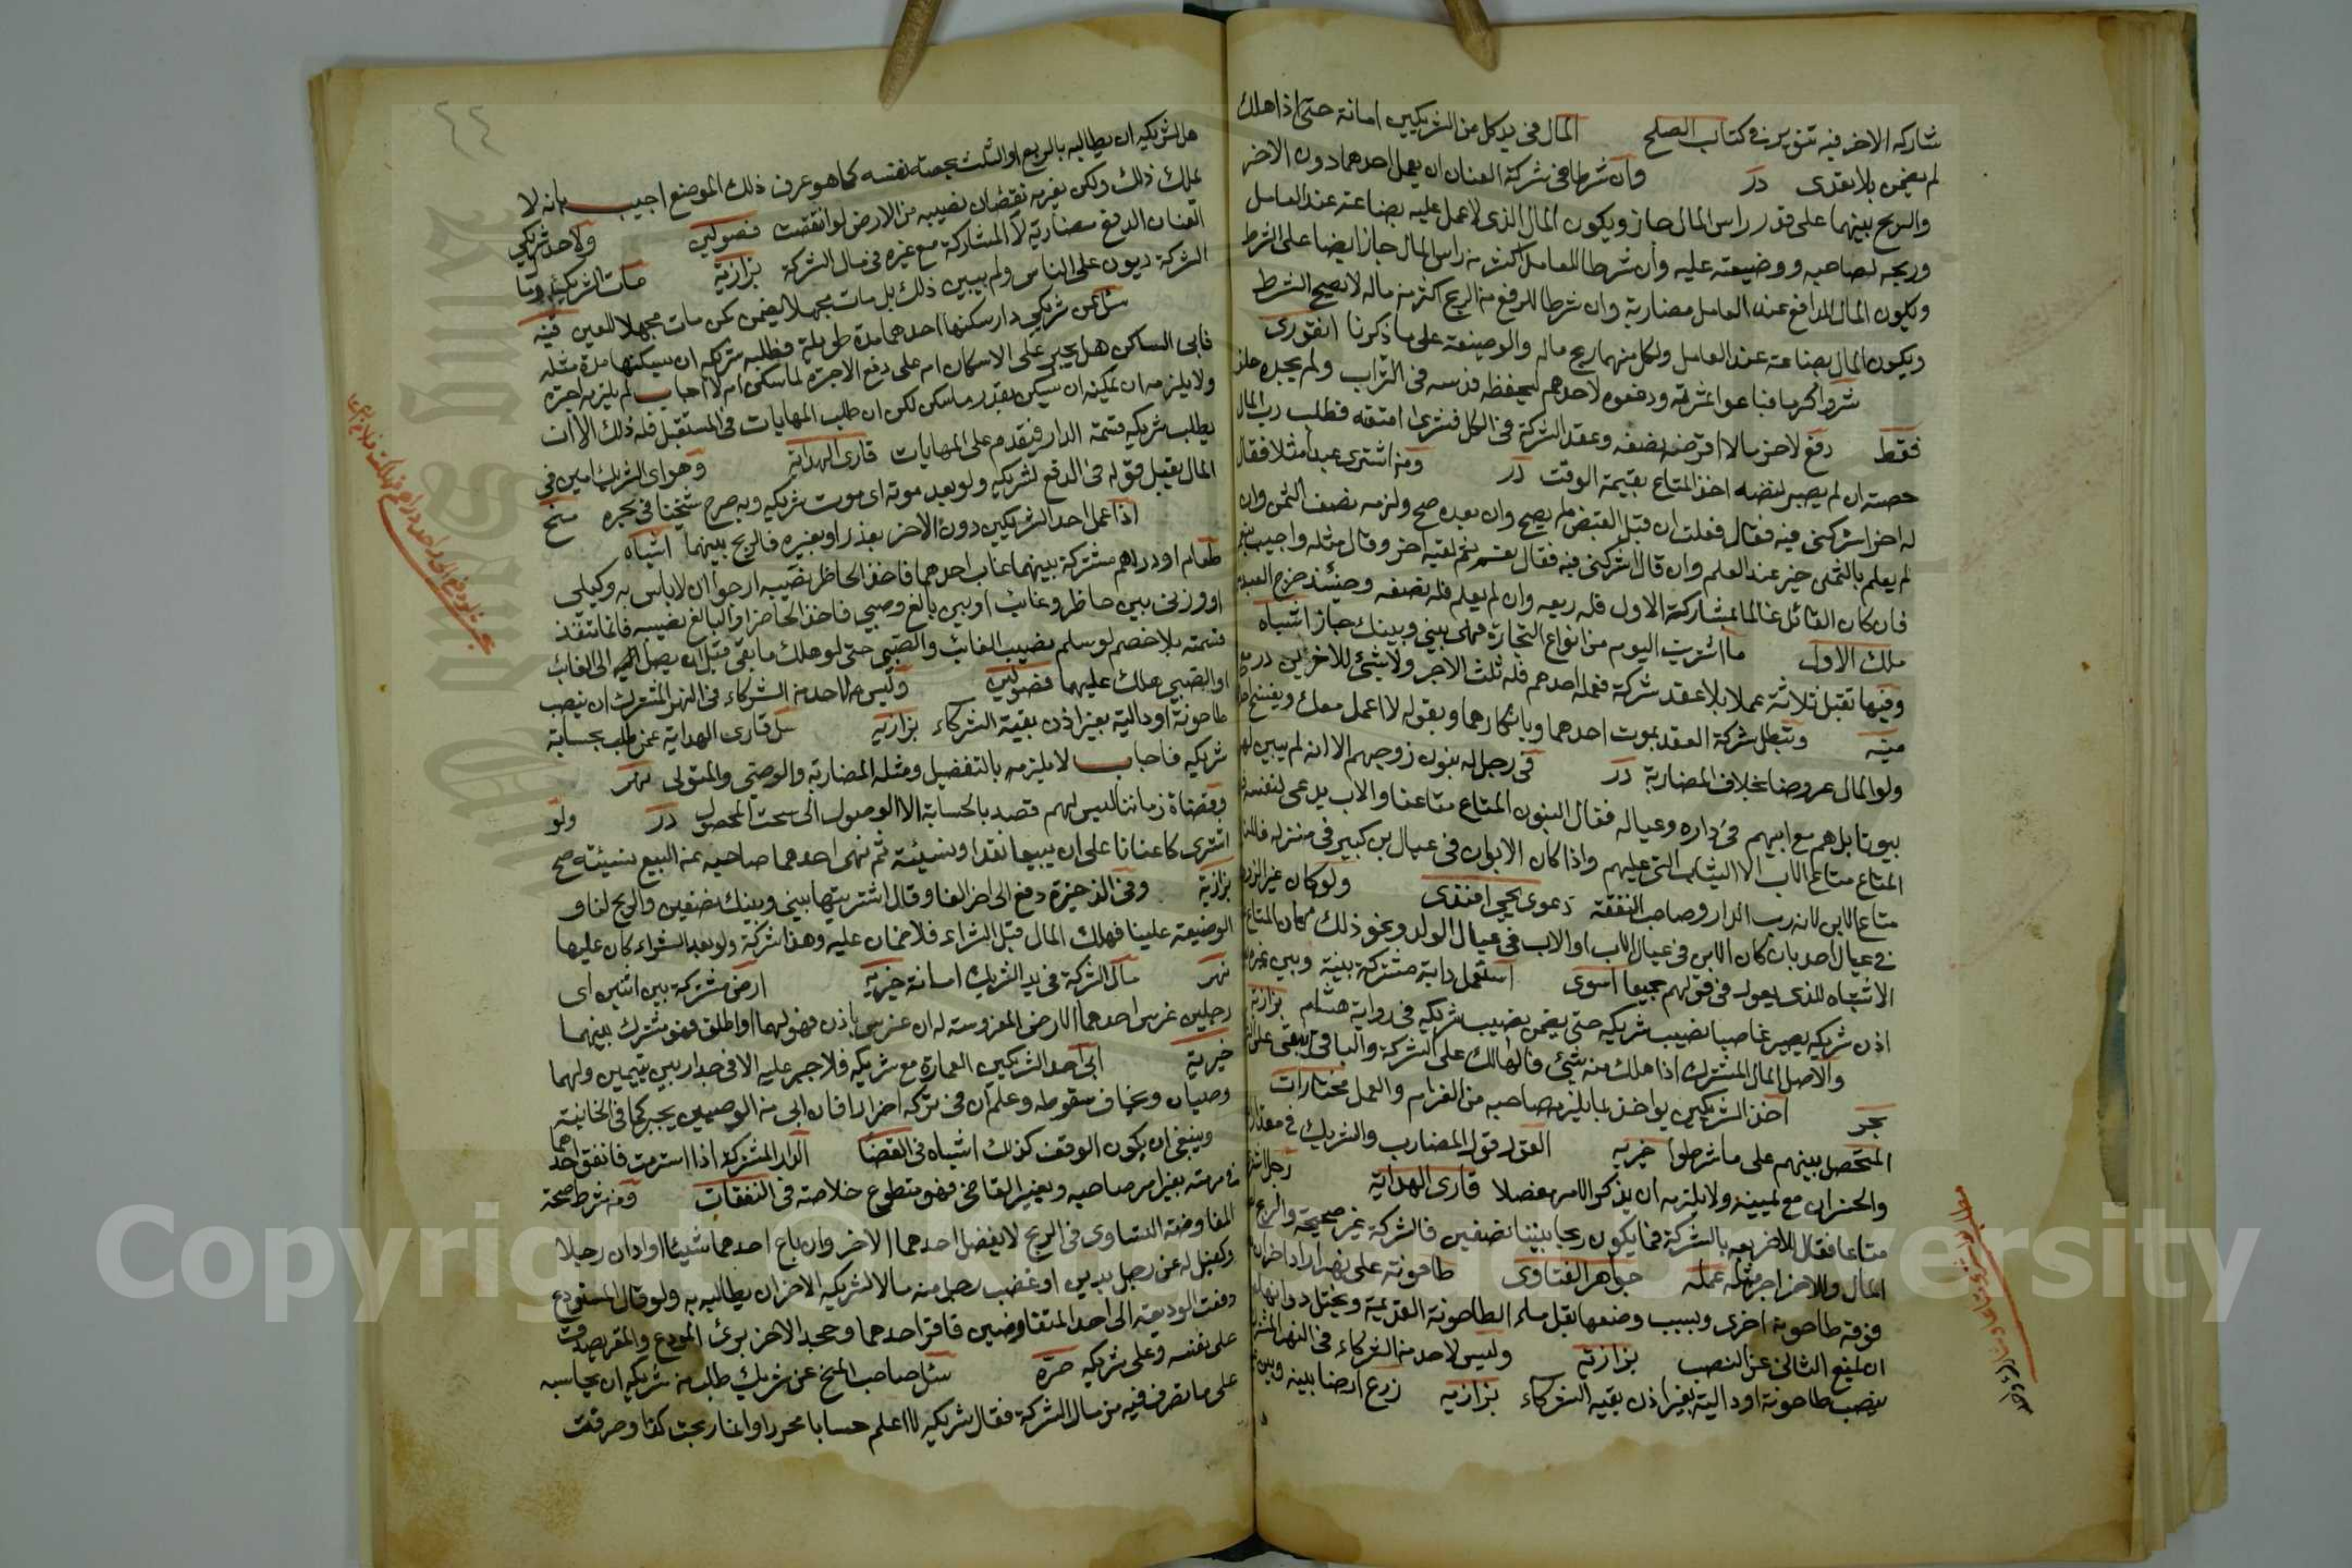 شاركه الاخر فيه تنوير في كتاب الصلح المال في يد كل من الشريكين امانة حتى اذا هلك
لم يضمن بلا تعدى درر وان شرطا في شركة العنان ان يعمل احدهما دون الاخر
والربح بينهما على قدر راس المال جاز ويكون المال الذي لا عمل عليه بضاعة عند العامل
وربحه لصاحبه ووضيعته عليه وان شرطا للعامل اكثر من راس المال جاز ايضا على الشرط
ويكون المال الدافع عند العامل مضاربة وان شرطا للدافع من الربح اكثر من ماله لا يصح الشرط
ويكون المال بضاعة عند العامل ولكل منهما ربح ماله والوضيعة على ما ذكرنا انقوري
ودفعوه لاحدهم ليحفظه فدسه في التراب ولم يجده حلف
فقط دفع لاخر مالا اقرضه نصفه وعقد الشركة في الكل فشرى امتعة فطلب رب المال
حصته ان لم يصبر لنضه اخذ المتاع بقيمة الوقت درر ومن اشترى عبدا مثلا فقال
له اخر اشركني فيه فقال فعلت ان قبل القبض لم يصح وان بعده صح ولزمه نصف الثمن وان
لم يعلم بالثمن خير عند العلم وان قال اشركني فيه فقال نعم ثم لقيه اخر وقال مثله واجيب بنعم
فان كان القائل عالما بمشاركة الاول فله ربعه وان لم يعلم فله نصفه وحينئذ خرج العبد من
ملك الاول ما اشتريت اليوم من انواع التجارة فهو بيني وبينك جاز اشباه
وفيها تقبل ثلاثة عملا بلا عقد شركة فعمله احدهم فله ثلث الاجر ولا شئ للاخرين درر
منه وتبطل شركة العقد بموت احدهما وبانكارهما وبقوله لا اعمل معك
ولو المال عروضا بخلاف المضاربة درر في رجل له بنون زوجهم الا انه لم يبين لهم
بيوتا بل هم مع ابيهم في داره وعياله فقال البنون المتاع متاعنا والاب يدعي لنفسه
المتاع متاع الاب الا الثياب التي عليهم واذا كان الابوان في عيال ابن كبير في منزله فالمتاع
متاع الابن لانه رب الدار وصاحب النفقة دعوى يحيى افندي ولو كان غير
في عيال احد بان كان الابن في عيال الاب او الاب في عيال الولد ونحو ذلك فكان المتاع
الاشتباه للذي يعول في قولهم جميعا اسوى استعمل دابة مشتركة بينه وبين غيره
اذن شريكه يصير غاصبا نصيب شريكه حتى يضمن نصيب شريكه في رواية هشام بزازية
والاصل المال المشترك اذا هلك منه شئ فالهالك على الشركة والباقي يبقى على
بحر احد الشريكين يؤاخذ بما يلزم صاحبه من الغرام والعمل مختارات
المتحصل بينهم على ما شرطوا خيرية القول قول المضارب والشريك في مقدار
والخسران مع يمينه ولا يلزمه ان يذكر الامر مفصلا قارئ الهداية رجل
متاعا فقال للاخر بعه بالشركة فما يكون ربحا بيننا نصفين فالشركة غير صحيحة والربح
المال وللاخر اجر مثل عمله جواهر الفتاوى طاحونة على نهر اراد اخر ان
فوقه طاحونة اخرى وبسبب وضعها يقل ماء الطاحونة القديمة ويختل دورانها
ان يمنع الثاني عن النصب بزازية وليس لاحد من الشركاء في النهر المشترك
ينصب طاحونة او دالية بغير اذن بقية الشركاء بزازية زرع ارضا بينه وبين
٤٤
هل لشريكه ان يطالبه بالربع او الثلث بحصة نفسه كما هو عرف ذلك الموضع اجيب بانه لا
يملك ذلك ولكن يغرمه نقصان نصيبه من الارض لو انتقصت فصولين ولاحد شريكي
العنان الدفع مضاربة لا المشاركة مع غيره في مال الشركة بزازية مات الشريك
الشركة ديون على الناس ولم يبين ذلك بل مات مجهلا يضمن كمن مات مجهلا للعين قنيه
سئل عن شريكي دار سكنها احدهما مدة طويلة فطلبه شريكه ان يسكنها مدة مثله
فابى الساكن هل يجبر على الاسكان ام على دفع الاجرة لما سكن ام لا اجاب لم يلزمه اجرة
ولا يلزمه ان يمكنه ان يسكن بقدر ما سكن لكن ان طلب المهايات في المستقبل فله ذلك الا ان
يطلب شريكه قسمة الدار فيقدم على المهايات قارئ الهداية وهو اي الشريك امين في
المال يقبل قوله في الدفع لشريكه ولو بعد موته اي موت شريكه وبه صرح شيخنا في بحره منح
اذا عمل احد الشريكين دون الاخر بعذر او بغيره فالربح بينهما اشباه
طعام او دراهم مشتركة بينهما غاب احدهما فاخذ الحاظر نصيبه ارجوا ان لا باس به وكيلي
او وزني بين حاظر وغائب او بين بالغ وصبي فاخذ الحاضر او البالغ نصيبه فانما تنفذ
قسمته بلا خصم لو سلم نصيب الغائب والصبي حتى لو هلك ما بقي قبل ان يصل اليه الى الغائب
او الصبي هلك عليهما فصولين وليس لاحد من الشركاء في النهر المشترك ان ينصب
طاحونة او دالية بغير اذن بقية الشركاء بزازية سئل قارئ الهداية عمن طلب محاسبة
شريكه فاجاب لا يلزمه بالتفصيل ومثله المضاربة والوصي والمتولي نهر
وقضاة زماننا ليس لهم قصد بالحاسبة الا الوصول الى سحت المحصول درر ولو
اشتركا عنانا على ان يبيعا نقدا ونسيئة ثم نهى احدهما صاحبه عن البيع نسيئة صح
بزازية وفي الذخيرة دفع الى اخر الفا وقال اشتريتها بيني وبينك نصفين والربح لنا و
الوضيعة علينا فهلك المال قبل الشراء فلا ضمان عليه وهذا شركة ولو بعد الشراء كان عليهما
نهر مال الشركة في يد الشريك امانة خيرية ارض مشتركة بين اثنين اي
رجلين غرس احدهما الارض المغروسة له ان غرس باذن فهو لهما او اطلق فهو مشترك بينهما
خيرية ابى احد الشريكين العمارة مع شريكه فلا جبر عليه الا في جدار بين يتيمين ولهما
وصيان ويخاف سقوطه وعلم ان في تركه اضرارا فان ابى من الوصيين يجبر كما في الخانية
وينبغي ان يكون الوقف كذلك اشباه في القضا الدار المشتركة اذا استرمت فانفق احدهما
في مرمته بغير امر صاحبه وبغير القاضي فهو متطوع خلاصة في النفقات ومن شرط صحة
المفاوضة التساوي في الربح لا يفضل احدهما الاخر وان باع احدهما شيئا او ادان رجلا
وكفيل له عن رجل بدين او غصب رجل منه مالا لشريكه الاخر ان يطالبه به ولو قال المستودع
دفعت الوديعة الى احد المتفاوضين فاقر احدهما وجحد الاخر برئ المودع والمقر يصدق
على نفسه وعلى شريكه صرة سئل صاحب المنح عن شريك طلب من شريكه ان يحاسبه
على ما تصرف فيه من مال الشركة فقال شريكه لا اعلم حسابا محررا وانما ربحت كذا وصرفت
Copyright © King Saud University